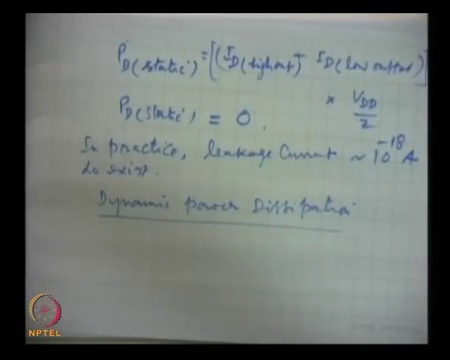 P_D(static) = [(I_D(highout) - I_D(low output)]
× V_DD/2
P_D(static) = 0.
In practice, leakage current ~ 10^-18 A
do exist.
Dynamic power Dissipation
NPTEL